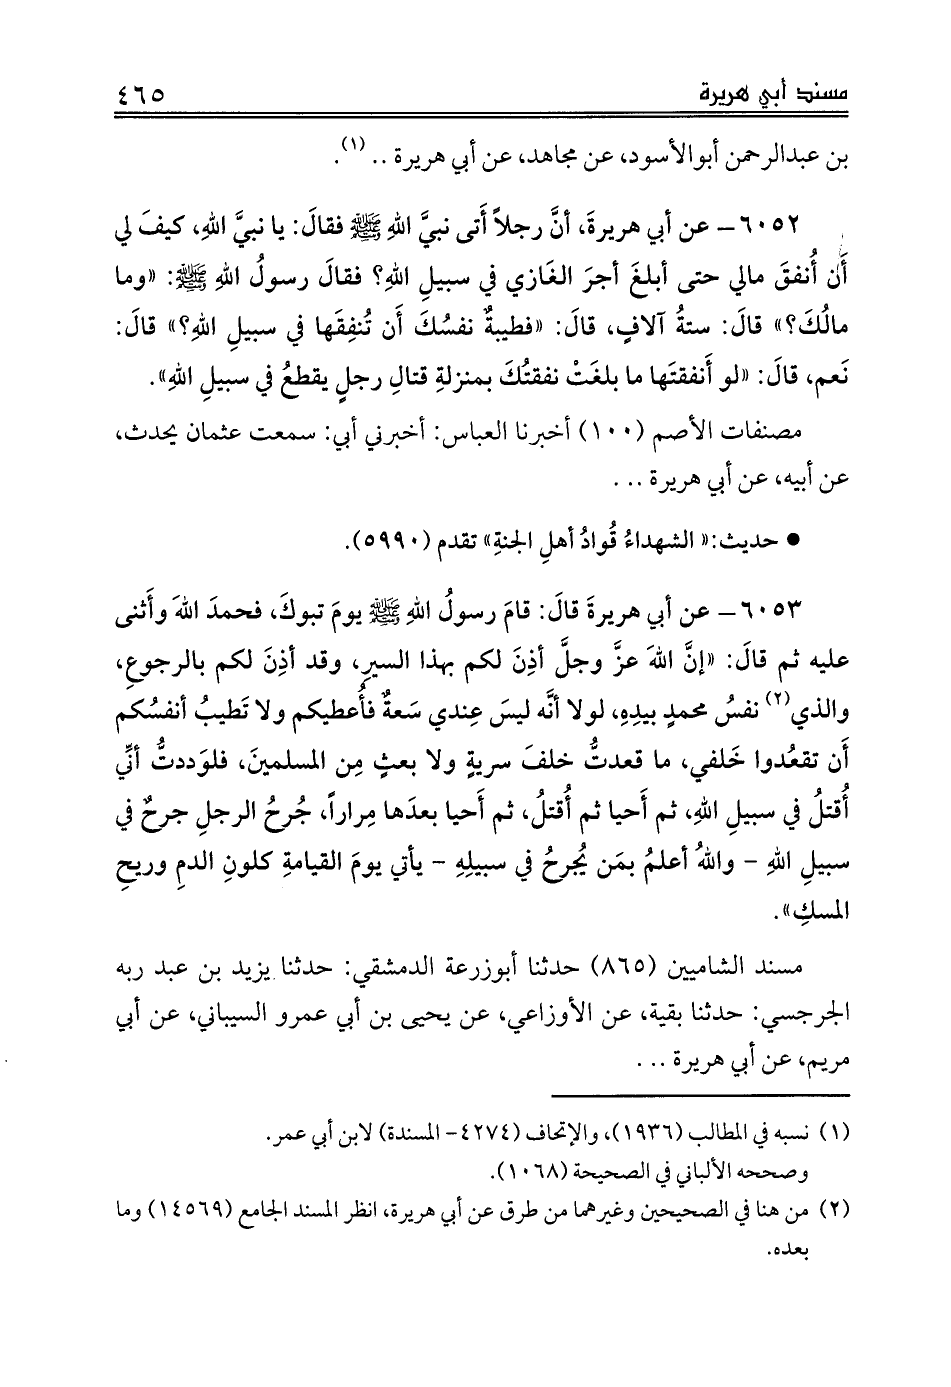 مسند أبي هريرة ٤٦٥
بن عبدالرحمن أبوالأسود، عن مجاهد، عن أبي هريرة .. (١).
٦٠٥٢ – عن أبي هريرةَ، أنَّ رجلاً أَتى نبيَّ اللهِ ﷺ فقالَ: يا نبيَّ اللهِ، كيفَ لي
أَن أُنفقَ مالي حتى أَبلغَ أجرَ الغَازي في سبيلِ اللهِ؟ فقالَ رسولُ اللهِ ﷺ: «وما
مالُكَ؟» قالَ: ستةُ آلافٍ، قالَ: «فطيبةٌ نفسُكَ أَن تُنفِقَها في سبيلِ اللهِ؟» قالَ:
نَعم، قالَ: «لو أَنفقتَها ما بلغَتْ نفقتُكَ بمنزلةِ قتالِ رجلٍ يقطعُ في سبيلِ اللهِ».
مصنفات الأصم (١٠٠) أخبرنا العباس: أخبرني أبي: سمعت عثمان يحدث،
عن أبيه، عن أبي هريرة ...
● حديث:« الشهداءُ قُوادُ أهلِ الجنةِ» تقدم (٥٩٩٠).
٦٠٥٣ – عن أبي هريرةَ قالَ: قامَ رسولُ اللهِ ﷺ يومَ تبوكَ، فحمدَ اللهَ وأَثنى
عليه ثم قالَ: «إنَّ اللهَ عزَّ وجلَّ أذِنَ لكم بهذا السيرِ، وقد أذِنَ لكم بالرجوعِ،
والذي(٢) نفسُ محمدٍ بيدِهِ، لولا أنَّه ليسَ عِندي سَعةٌ فأُعطيكم ولا تَطيبُ أنفسُكم
أَن تقعُدوا خَلفي، ما قعدتُّ خلفَ سريةٍ ولا بعثٍ مِن المسلمينَ، فلوَددتُّ أنِّي
أُقتلُ في سبيلِ اللهِ، ثم أَحيا ثم أُقتلُ، ثم أَحيا بعدَها مِراراً، جُرحُ الرجلِ جرحٌ في
سبيلِ اللهِ – واللهُ أعلمُ بمَن يُجرحُ في سبيلِهِ – يأتي يومَ القيامةِ كلونِ الدمِ وريحِ
المسكِ».
مسند الشاميين (٨٦٥) حدثنا أبوزرعة الدمشقي: حدثنا يزيد بن عبد ربه
الجرجسي: حدثنا بقية، عن الأوزاعي، عن يحيى بن أبي عمرو السيباني، عن أبي
مريم، عن أبي هريرة ...
(١) نسبه في المطالب (١٩٣٦)، والإتحاف (٤٢٧٤– المسندة) لابن أبي عمر.
وصححه الألباني في الصحيحة (١٠٦٨).
(٢) من هنا في الصحيحين وغيرهما من طرق عن أبي هريرة، انظر المسند الجامع (١٤٥٦٩) وما
بعده.